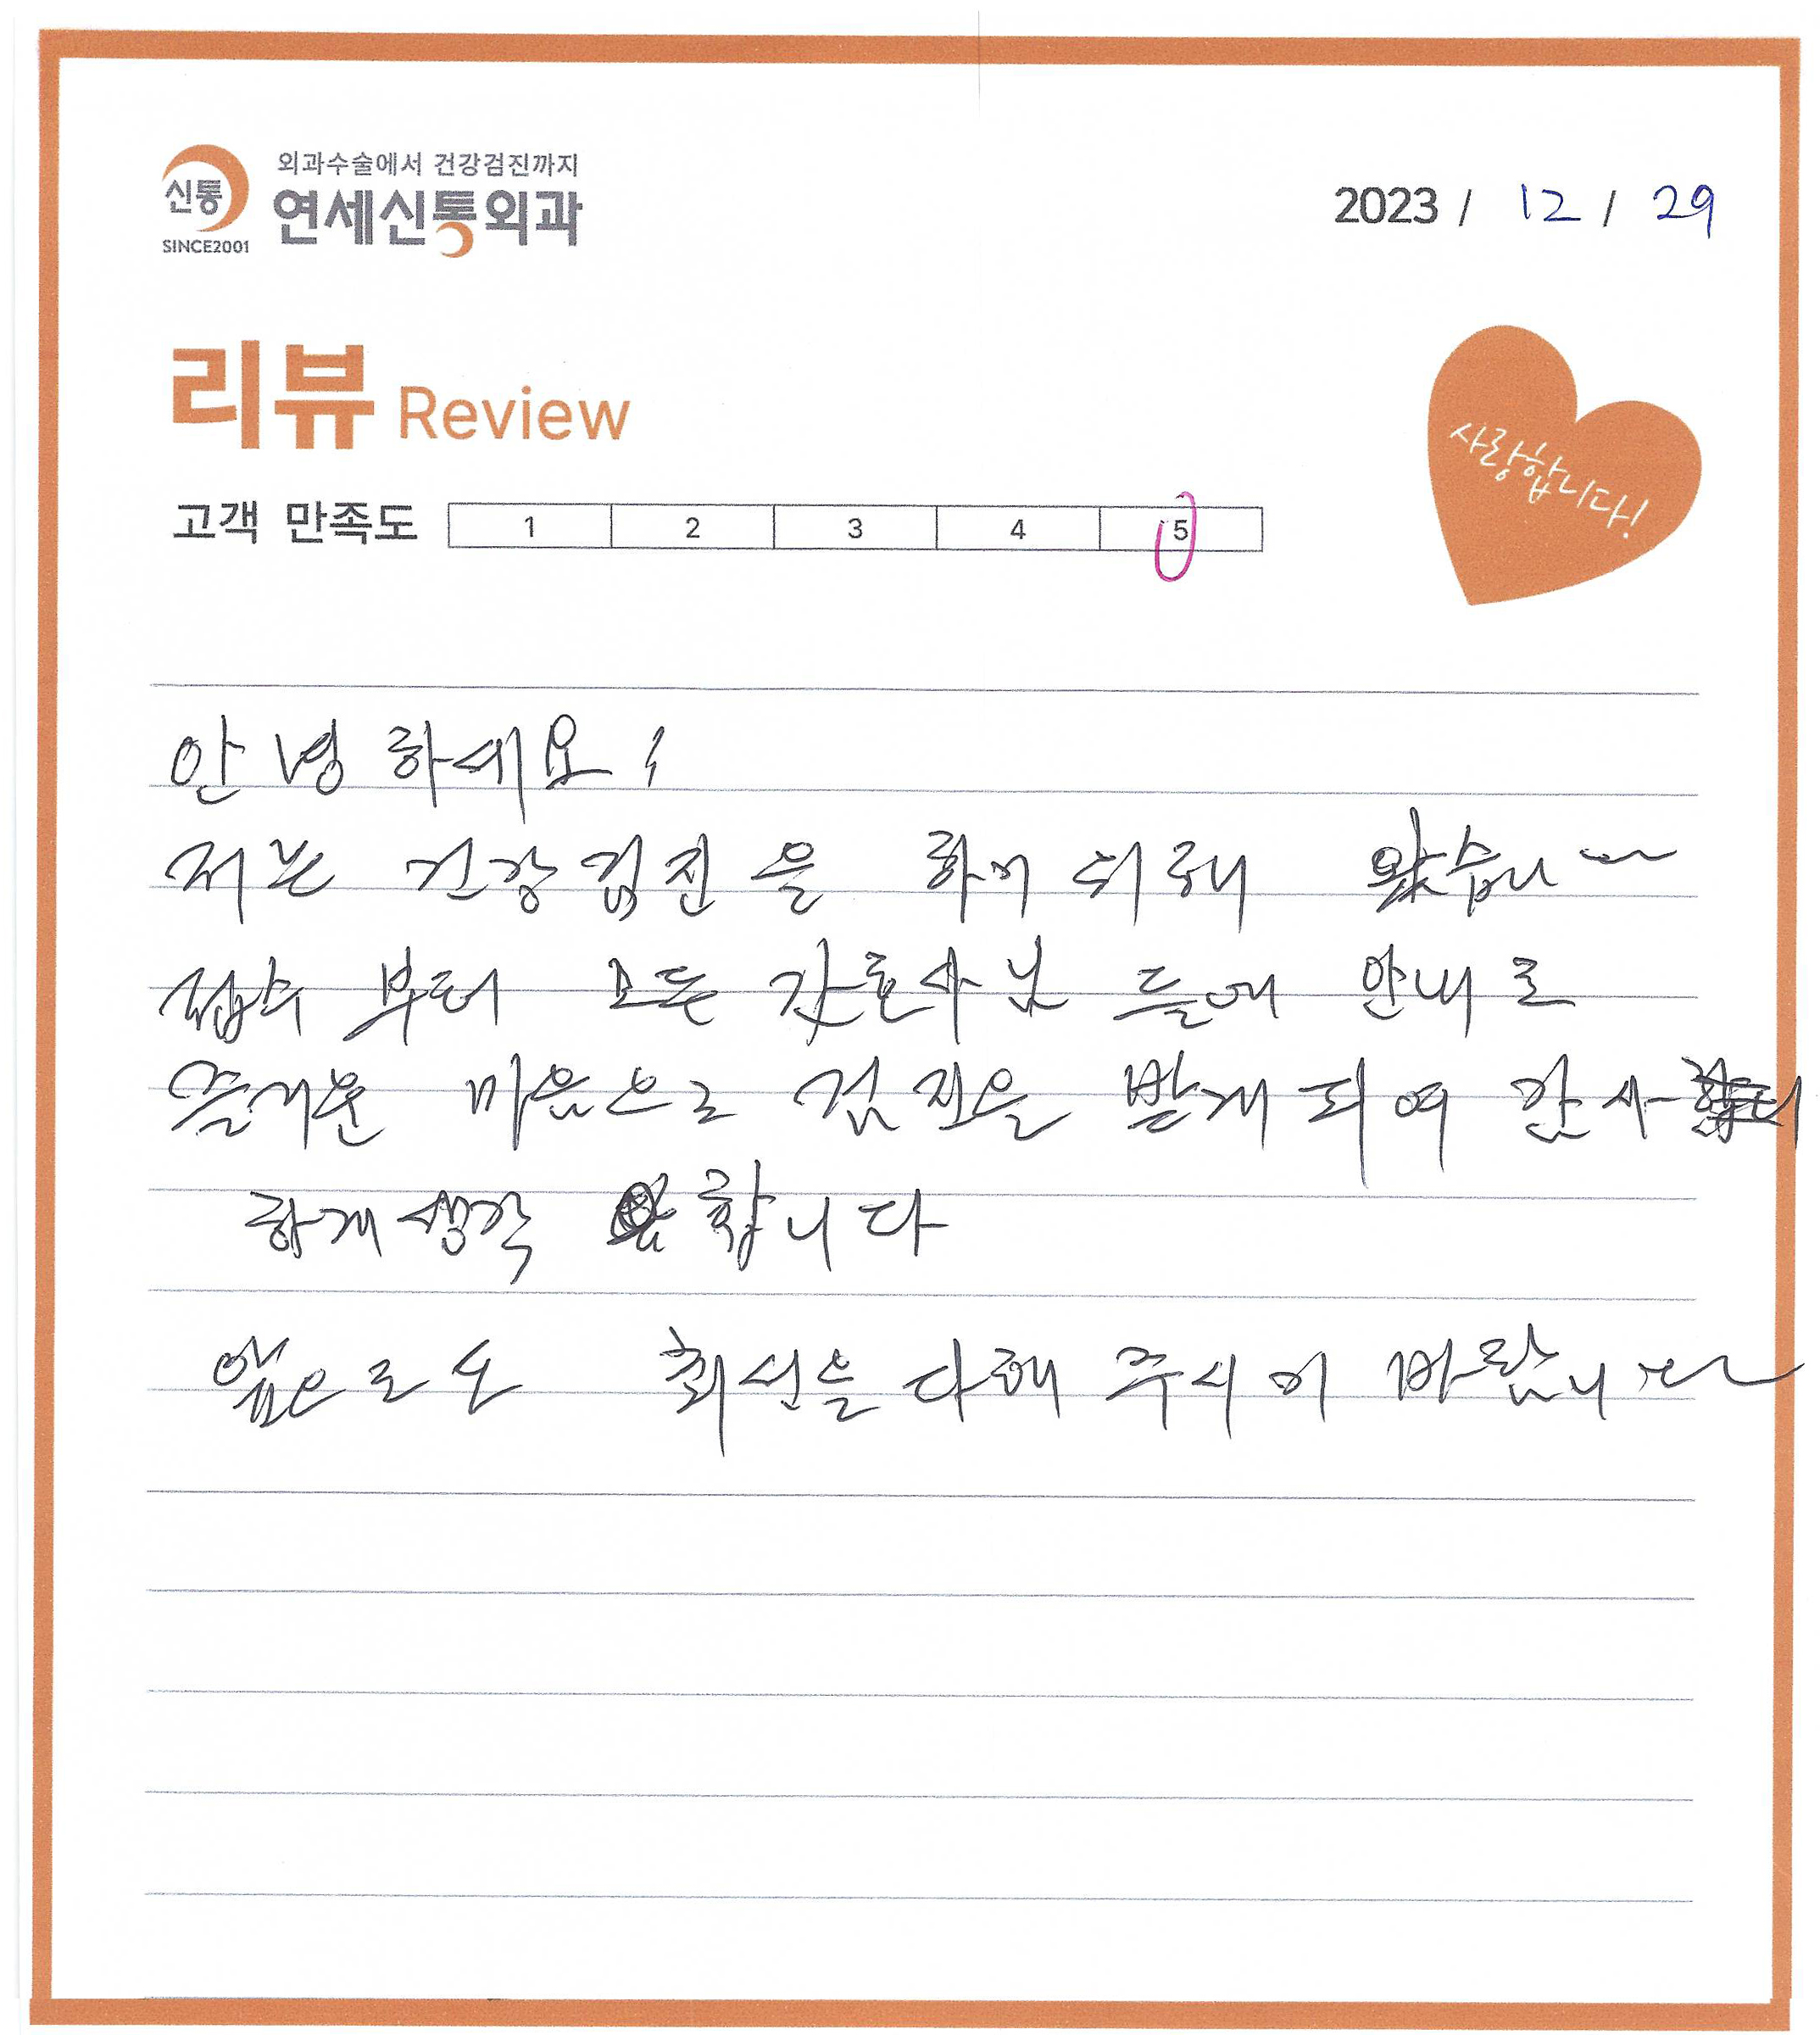 신통
SINCE2001
외과수술에서 건강검진까지
연세신통외과
2023 / 12 / 29
리뷰 Review
사랑합니다!
고객 만족도 1 2 3 4 5
안녕하세요!
저는 건강검진을 하기 위해 왔습니다
접수 부터 모든 간호사님 들에 안내로
즐거운 마음으로 검진을 받게 되여 감사
하게 생각 합니다
앞으로도 최선을 다해 주시기 바랍니다